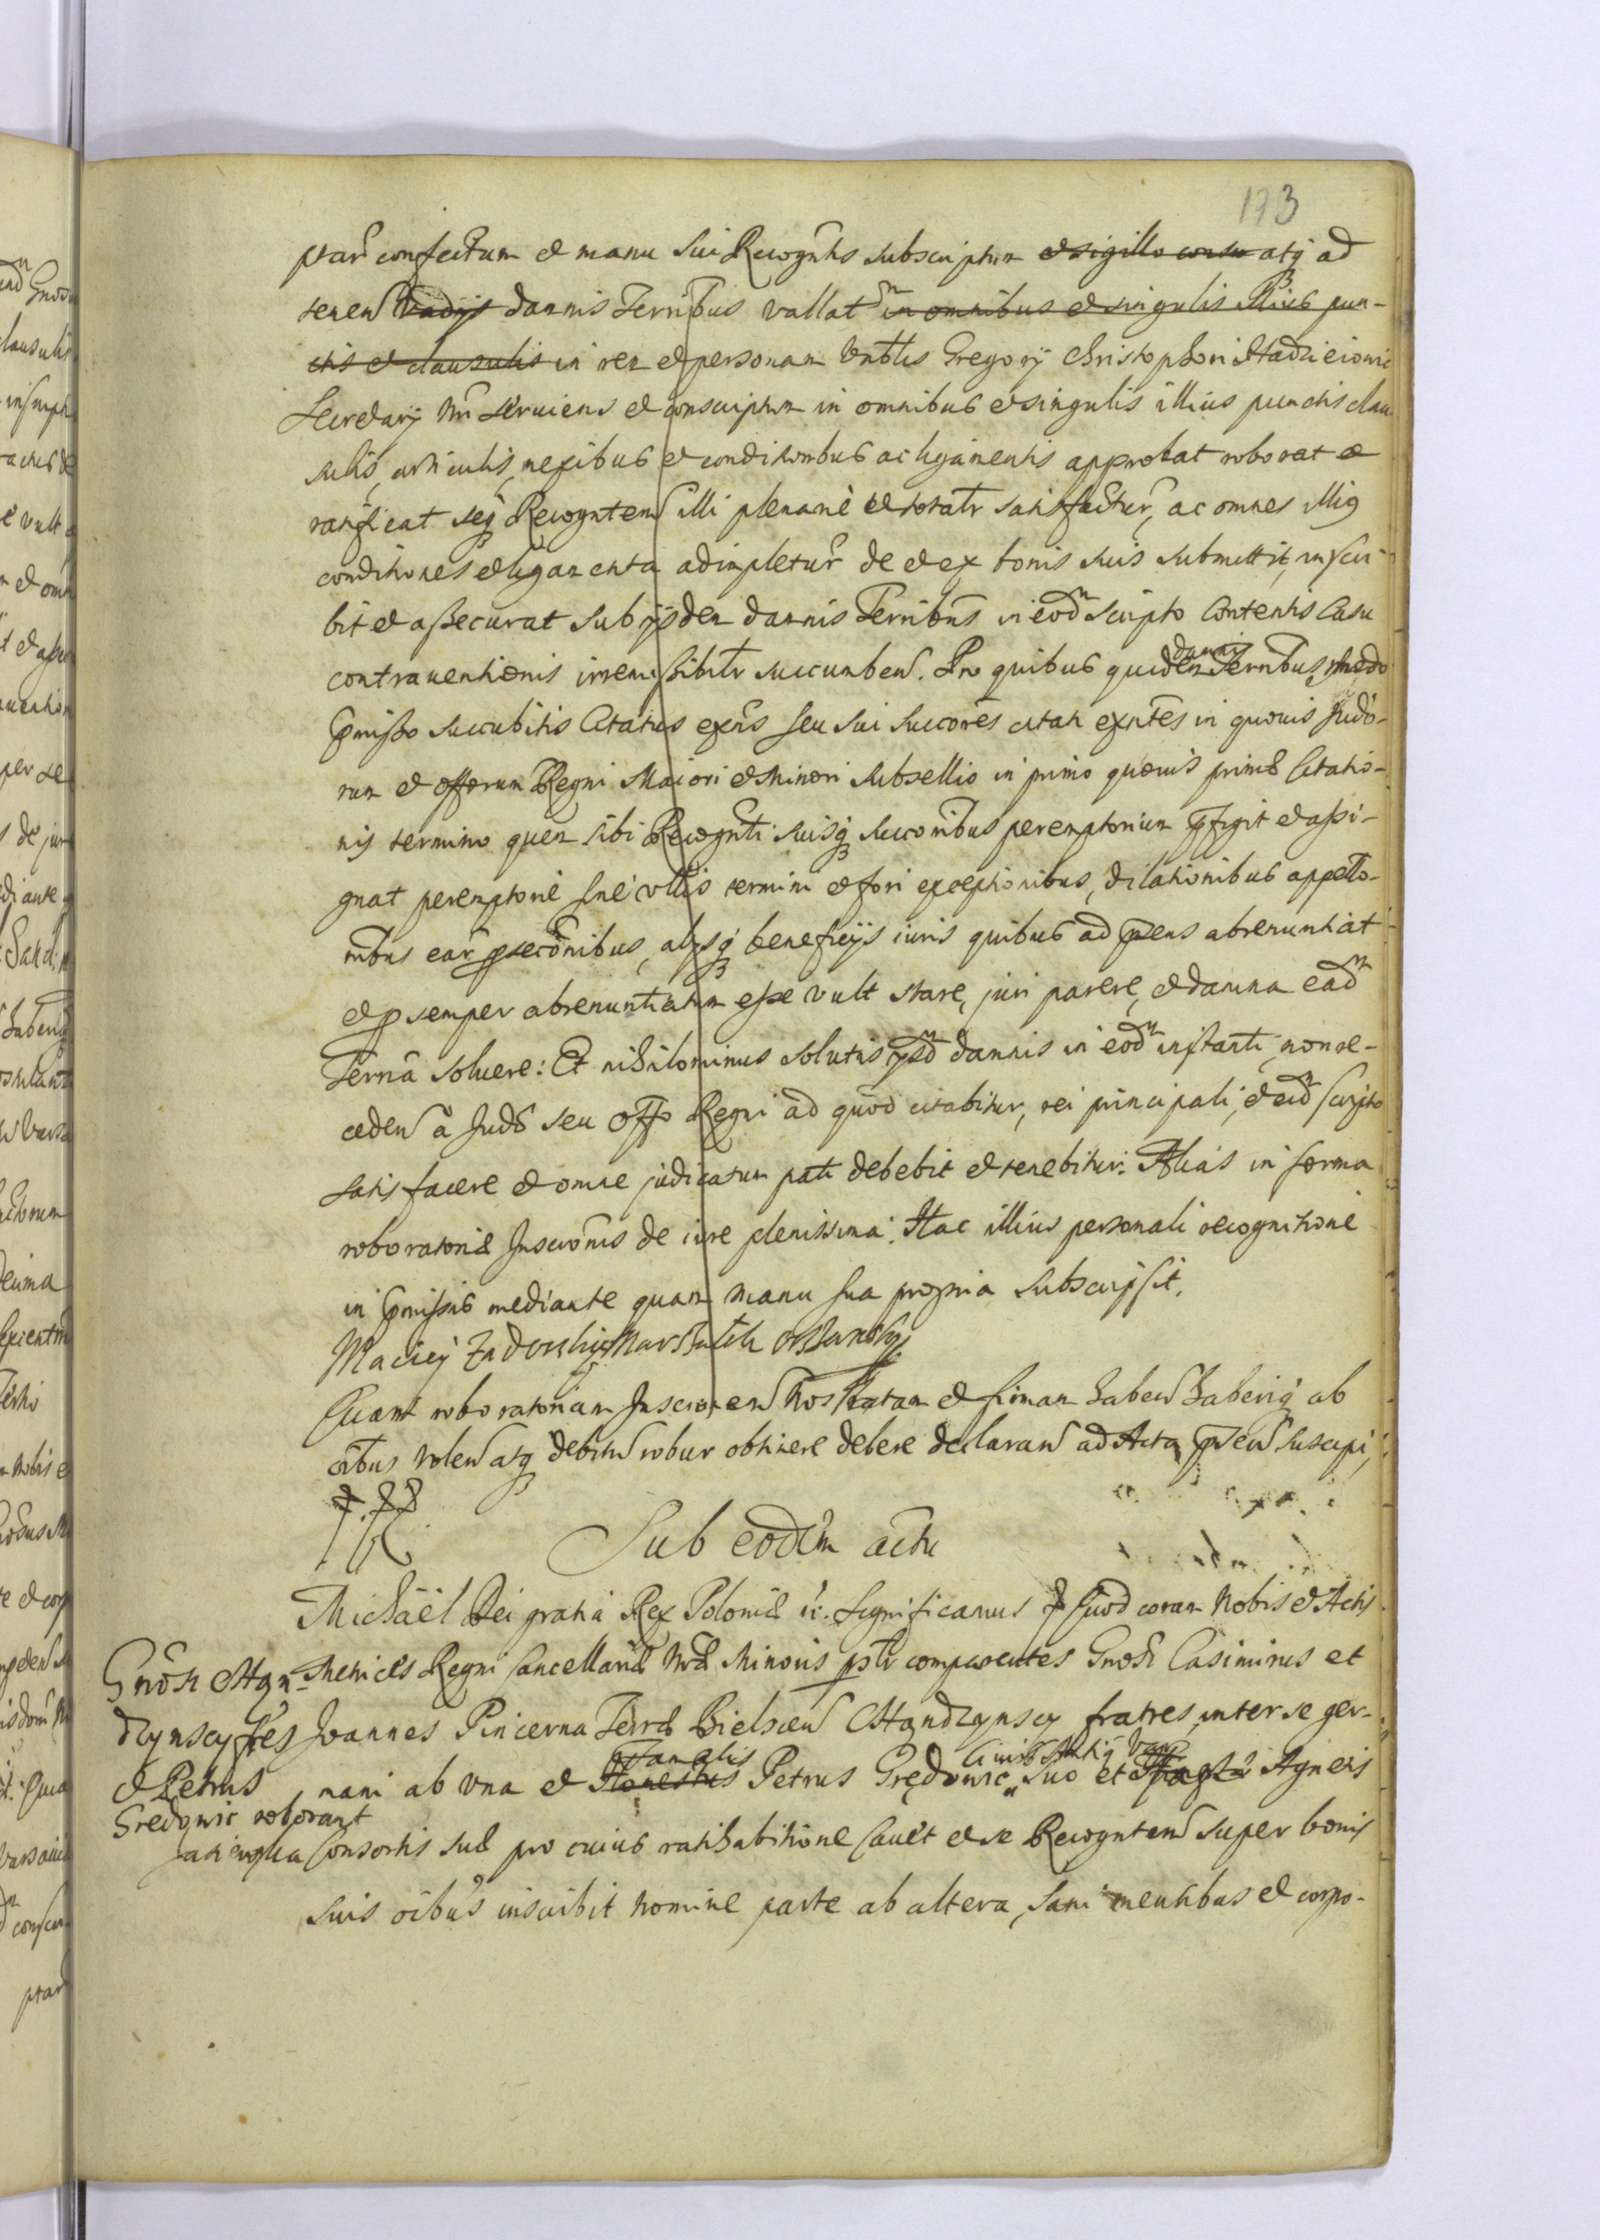 173
ptar confectum et manu sui Recognñtis subscriptum et sigillo consu atq ad
tenen Vadijs damnis Terribus vallat in omnibus et singulis illius pun-
ctis et clausulis in rem et personam Gregorij Christophori
Secretarij Nri serviens et conscriptum in omnibus et singulis illius punctis clau
sulis, articulis, nexibus et conditionibus ac ligamentis approbat roborat et
ratificat seq Recognten illi plenarie et totalr satisfactur, ac omnes illiq
conditiones et ligamenta adimpletur de et ex bonis suis submittit, inscri
bit et assecurat sub ijsdem damnis Terribus in eod scripto contentis Casu
contrauentionis irremissibilr succumben. Pro quibus quidem damnis Terribus, modo
pmisso succubitis Citatus exns seu sui succores citati exntes in quouis Judio-
rum et offorum Regni Maiori et Minori subsellio in primo quouis primæ Citatio-
nis termino quem sibi Recognti suisq succoribus peremptorium pfigit et assi-
gnat peremptorie sine ullis termini et fori exceptionibus, dilationibus appello-
nibus ear psecõnibus, absq beneficijs iuris quibus ad psens abrenuntiat
et p semper abrenuntiatum esse vult stare, juri parere, et damna ead
Terrna soluere: Et nihilominus solutis ijsd damnis in eod instanti, non re-
ceden à Judo seu offo Regni ad quod citabitur, rei principali, et eid scripto
satisfacere et omne judicatum pati debebit et tenebitur. Alias in forma
roboratoriæ Inscrõnis de iure plenissima. Hac illius personali recognitione
in pmissis mediante quam manu sua propria subscripsit.
Maciej
Quam roboratoriam Inscrõnem Nos Ratam et firmam haben haberiq ab
oibus volen atq debitum robur obtinere debere declaran ad Acta psen suscepi,
Sub eodem actu
Michaël Dei gratia Rex Poloniæ &c. Significamus Quod coram Nobis et Actis
Metrices Regni Cancellariæ Nræ Minoris pslr comparentes Gnosi Casimirus et
Joannes Pincerna Terræ Bielscen fratres inter se ger-
mani ab vna et Honestus Famatus Petrus Grędowic Civis Antiq Vars suo et Agnetis
consortis suæ pro cuius ratihabitione cauet et se Recognten super bonis
suis oibus inscribit nomine parte ab altera, sani mentibus et corpo-
Gnosi
dzynscy frēs
et Petrus
Gredowic roborant